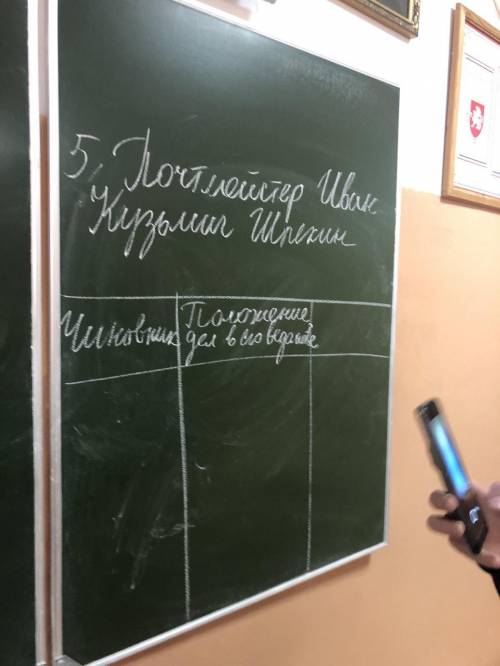 5, Почтмейстер Иван
Кузьмич Шпекин
Чиновник
Положение
дел в его ведомстве